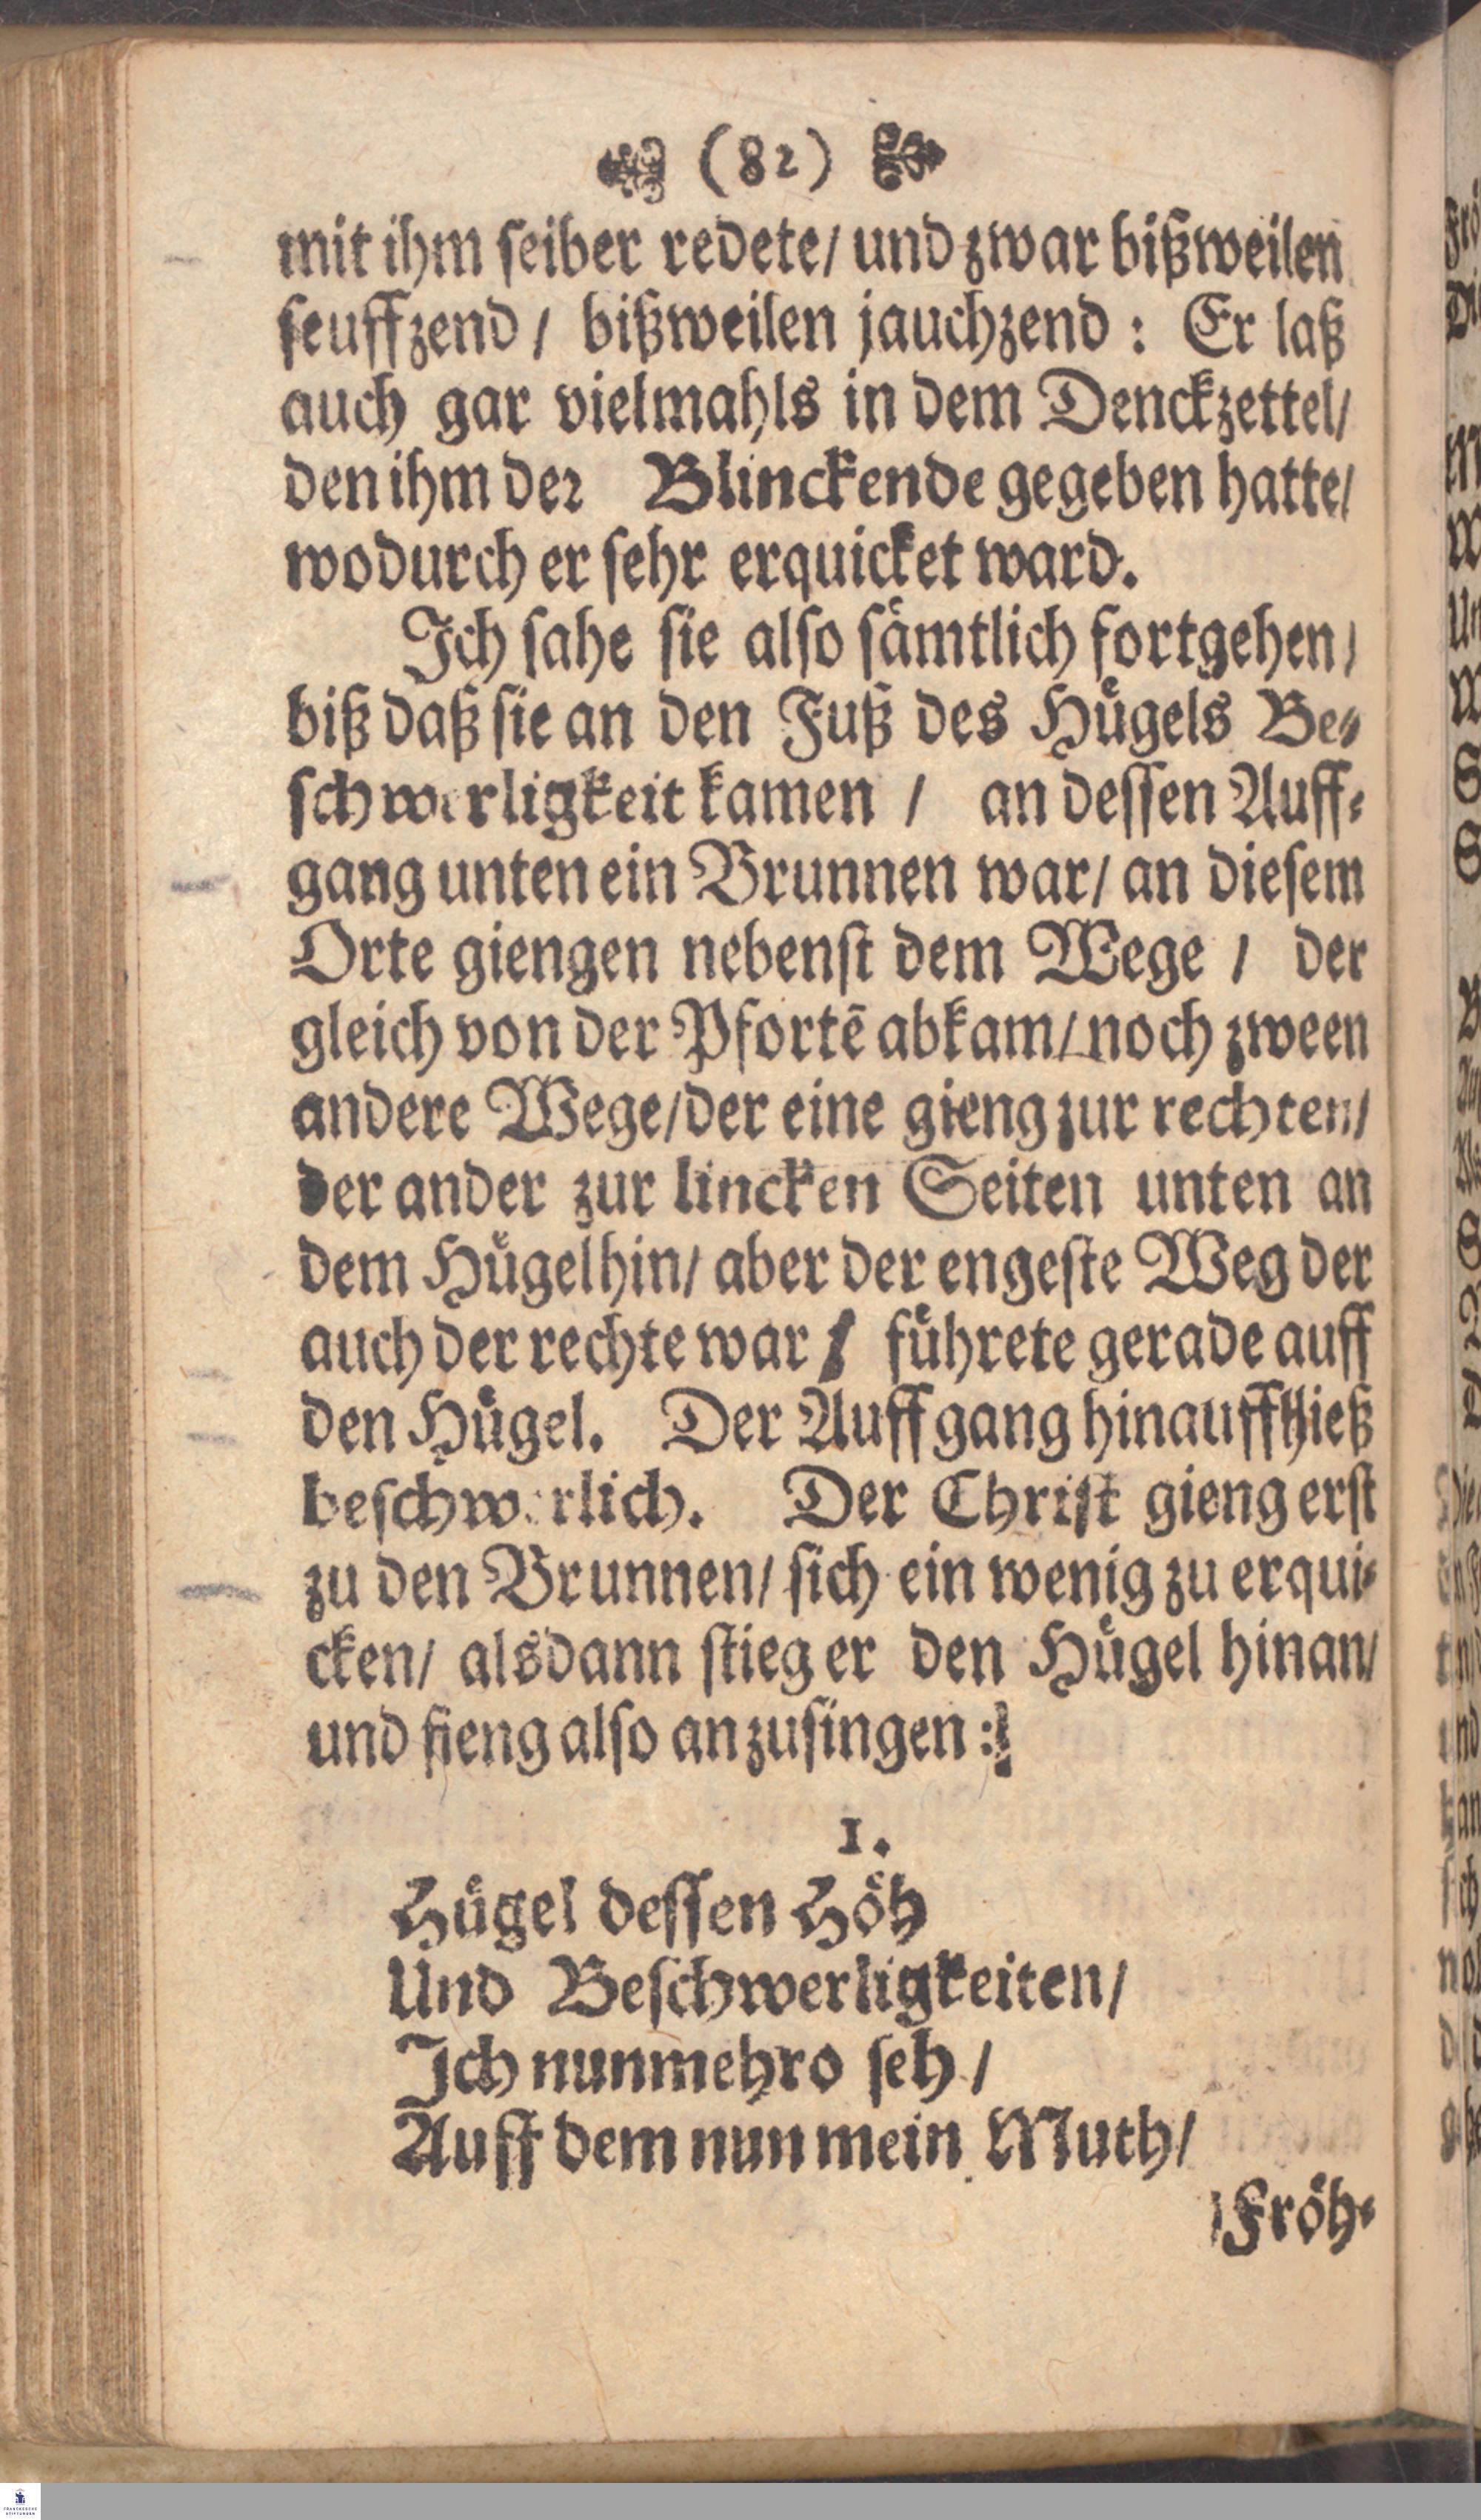 (82)
mit ihm seiber redete/ und zwar bißweilen
seuffzend/ bißweilen jauchzend: Er laß
auch gar vielmahls in dem Denckzettel/
den ihm der Blinckende gegeben hatte/
wodurch er sehr erquicket ward.
Ich sahe sie also sämtlich fortgehen/
biß daß sie an den Fuß des Hügels Be-
schwerligkeit kamen / an dessen Auff-
gang unten ein Brunnen war/ an diesem
Orte giengen nebenst dem Wege / der
gleich von der Pfortē abkam/ noch zween
andere Wege/der eine gieng zur rechten/
der ander zur lincken Seiten unten an
dem Hügel hin/ aber der engeste Weg der
auch der rechte war / führete gerade auff
den Hügel. Der Auffgang hinauff hieß
beschwerlich. Der Christ gieng erst
zu den Brunnen/ sich ein wenig zu erqui-
cken/ alsdann stieg er den Hügel hinan/
und fieng also an zusingen:
1.
Hügel dessen Höh
Und Beschwerligkeiten/
Ich nunmehro seh/
Auff dem nun mein Muth/
Fröh-